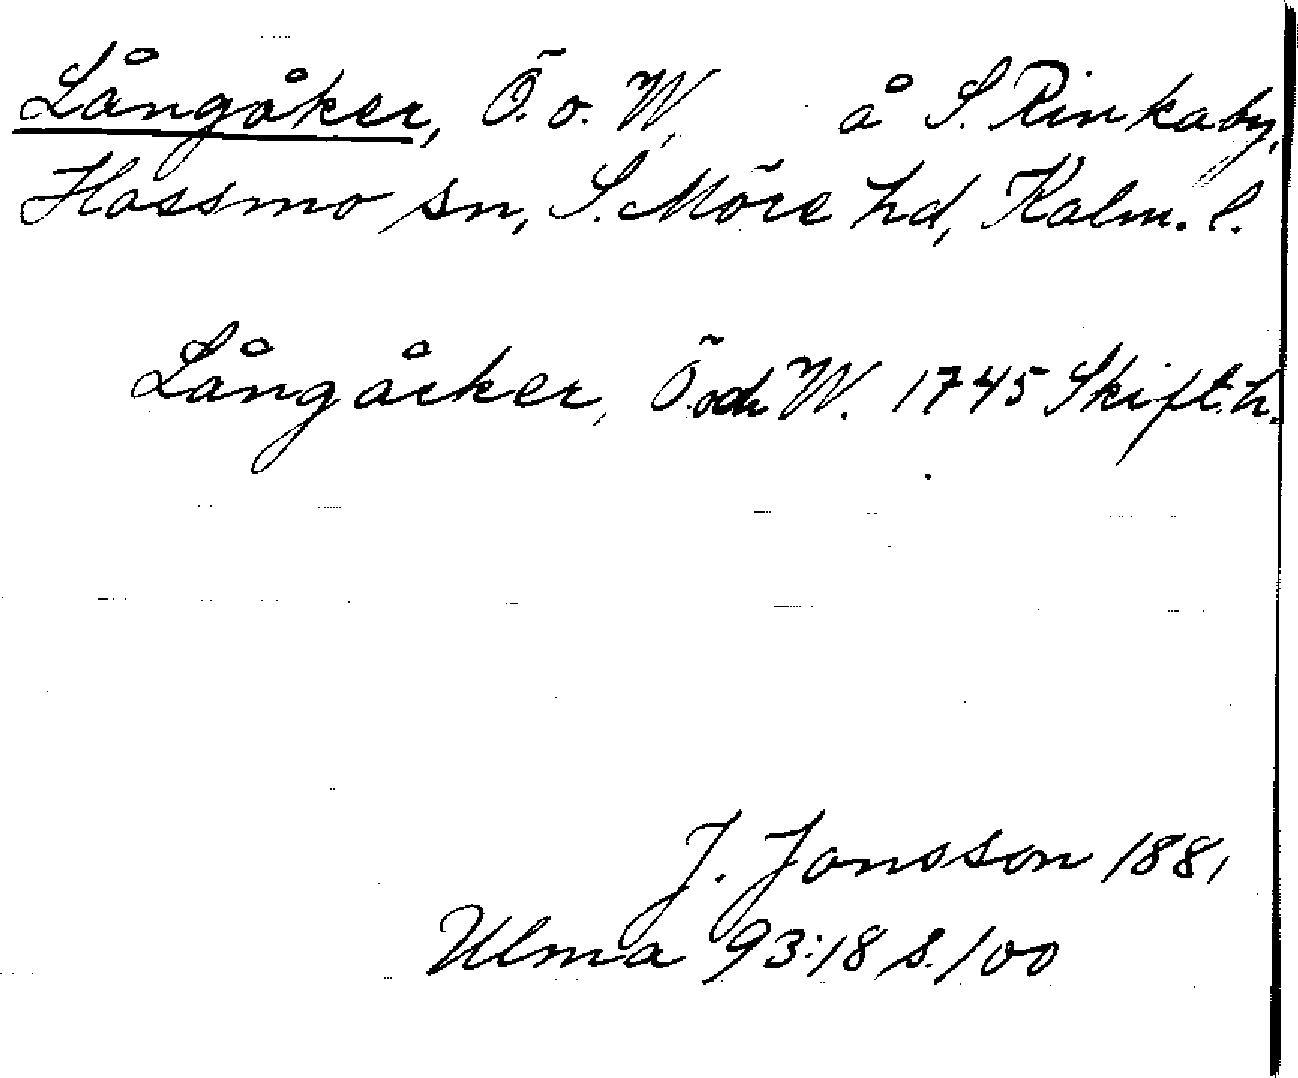 Långåker, Ö. o. W, å S. Rinkaby,
Hossmo sn, S. Möre hd, Kalm. l.
Långåcker, Ö. och W. 1745 Skift.h.
J. Jonsson 1881
Ulma 93:18 s. 100